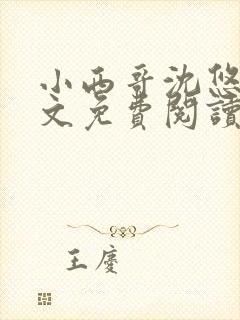 小西哥沈悠
文免費閱讀
王慶